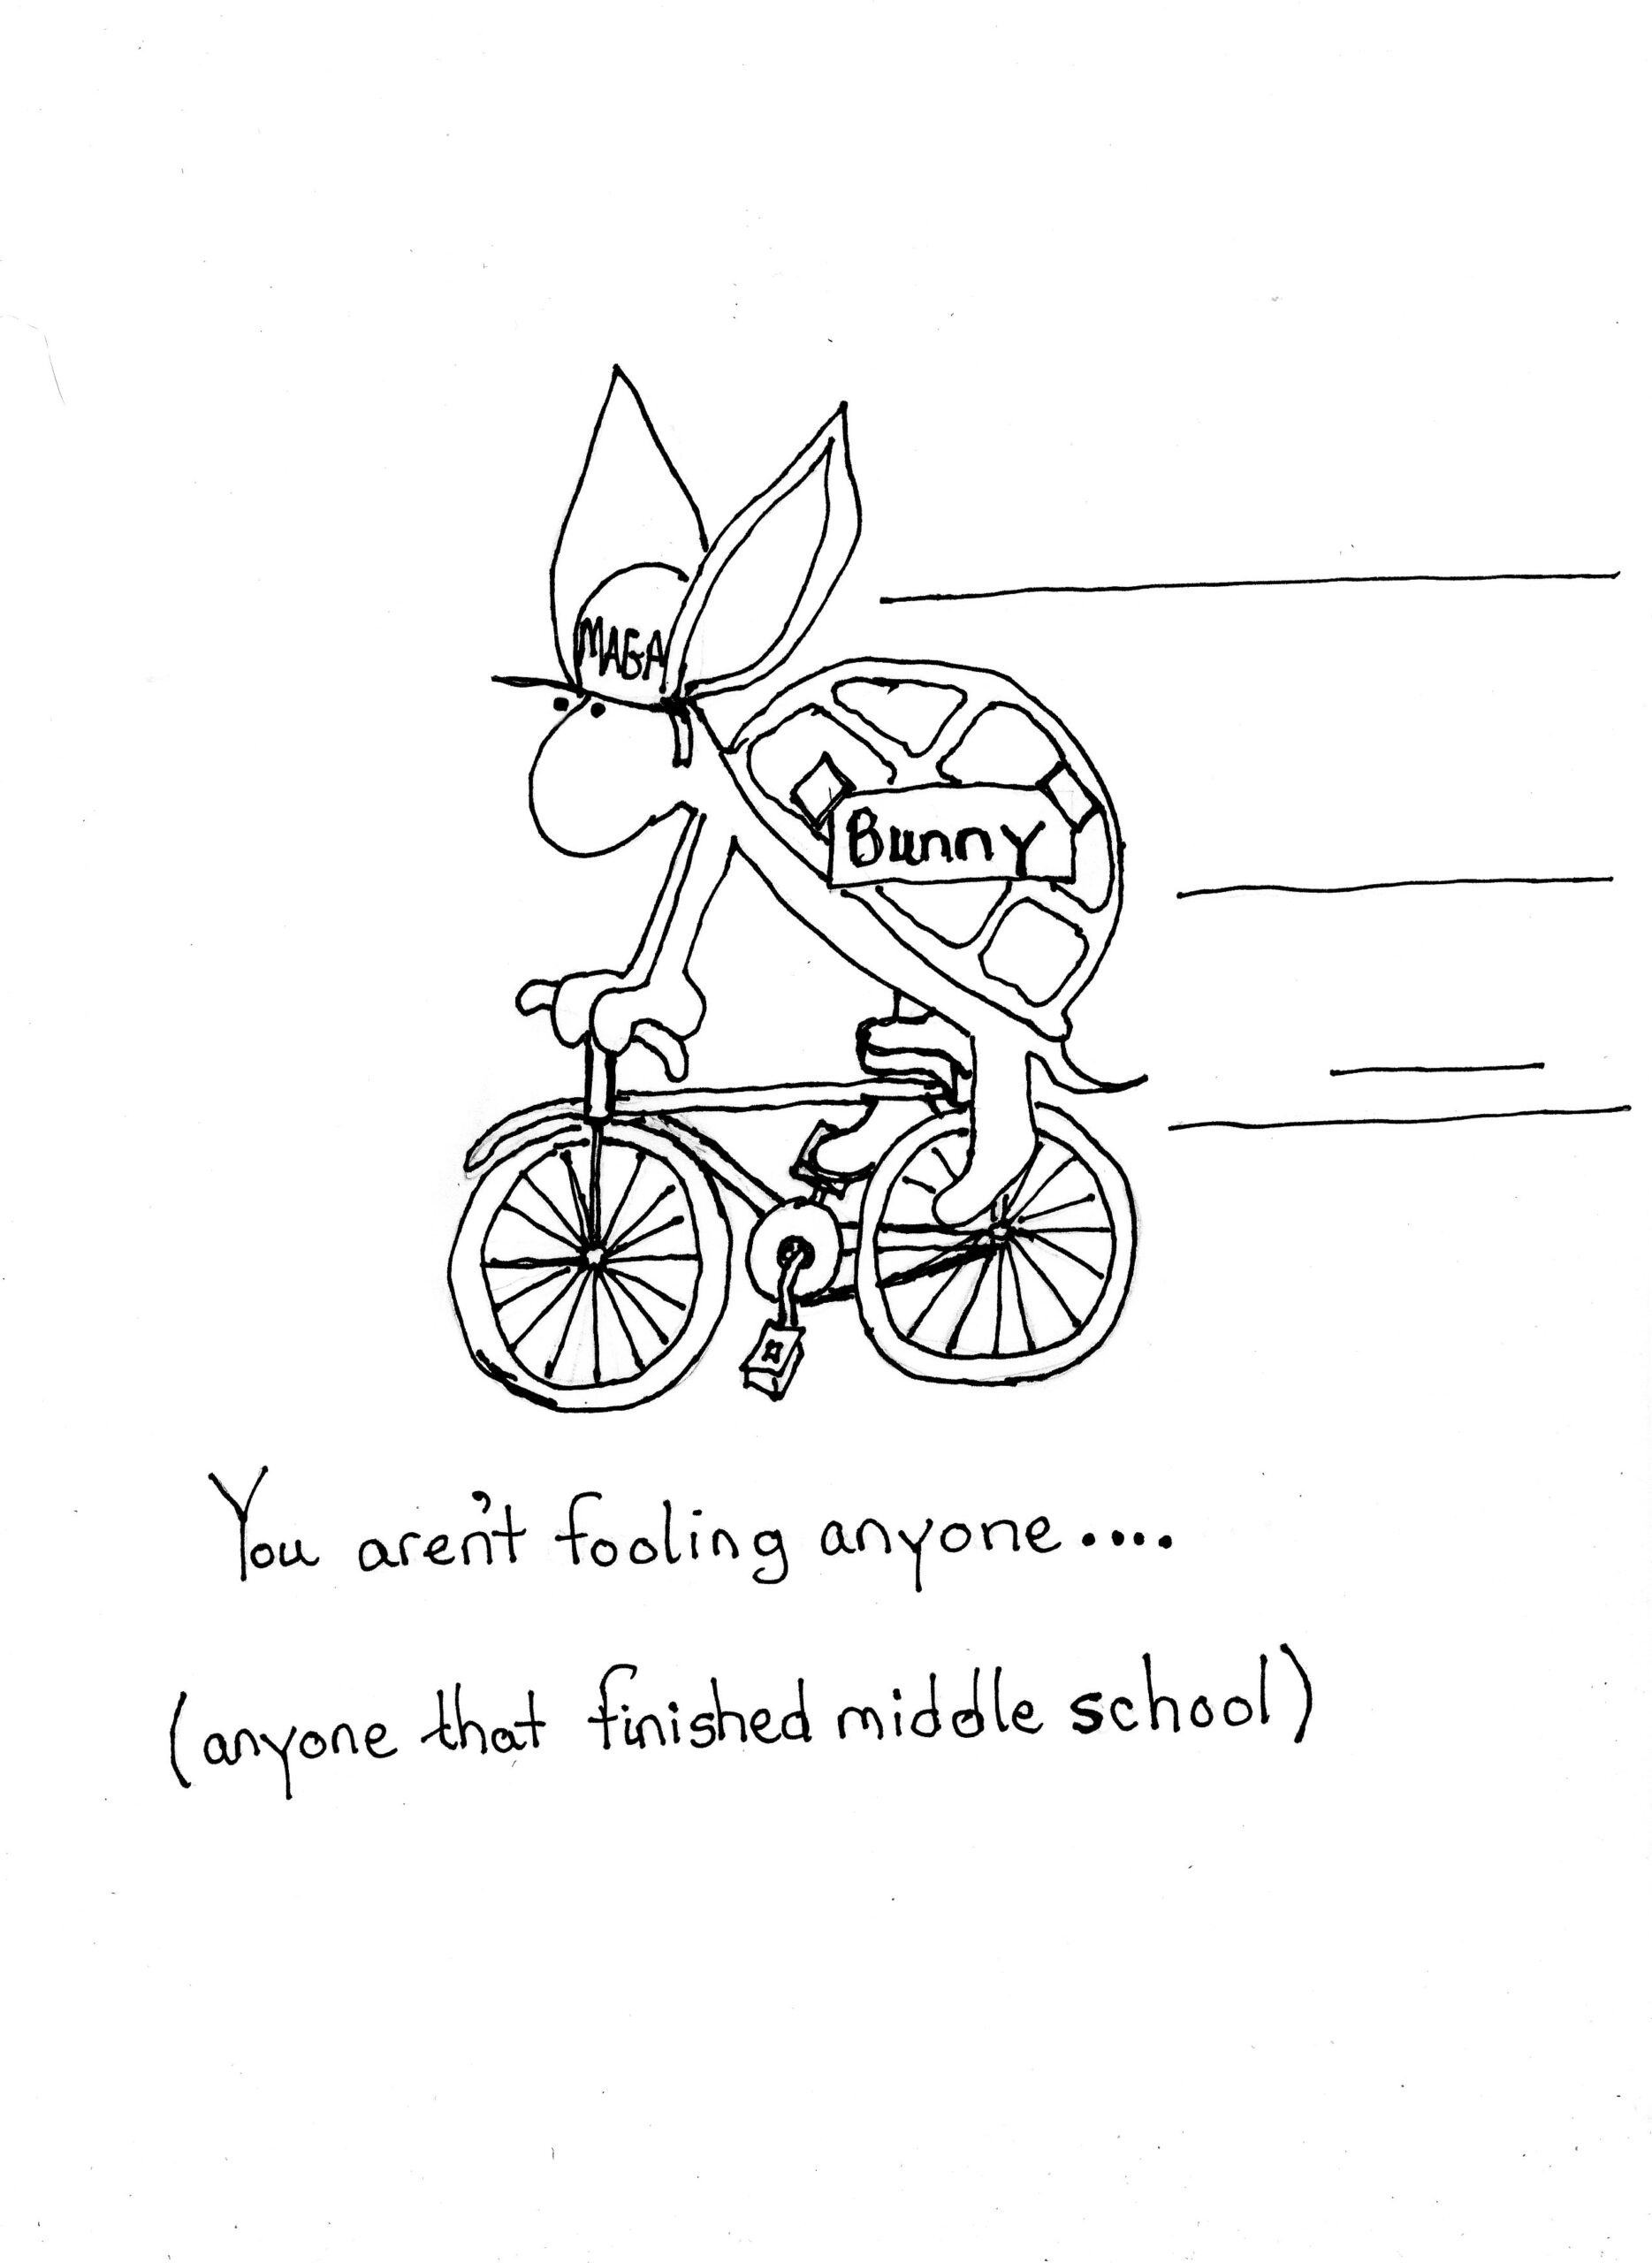 MAGA
Bunny
You aren't fooling anyone....
(anyone that finished middle school)